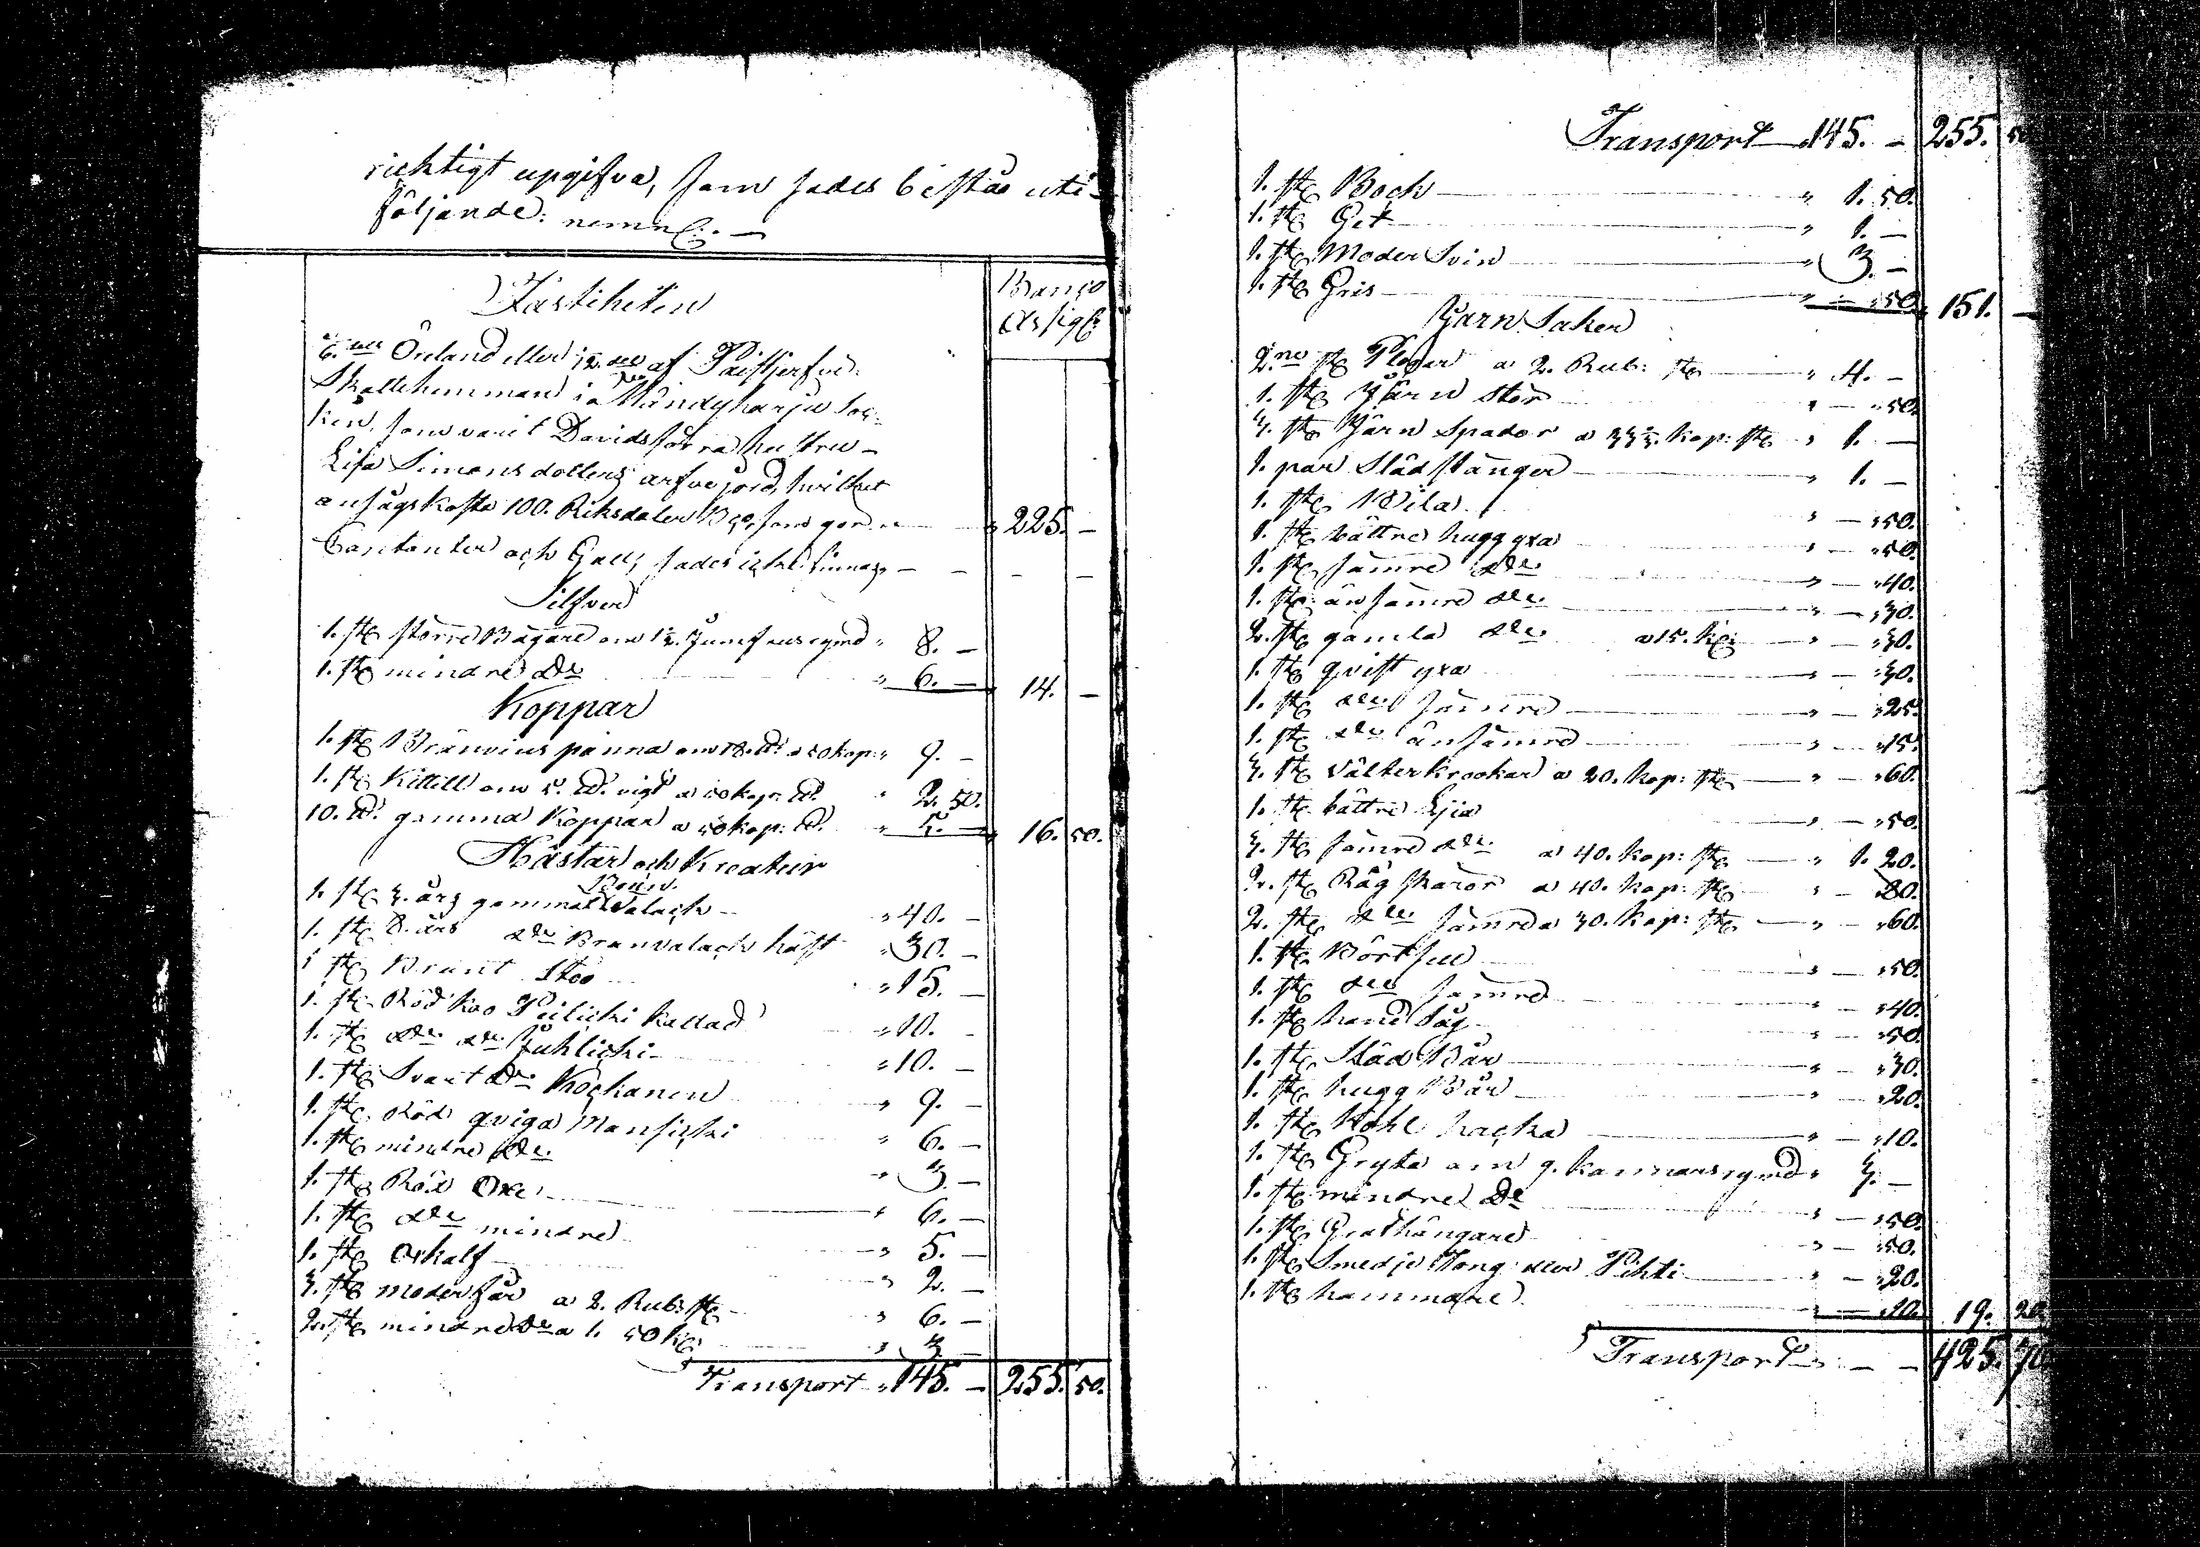 richtigt upgifva, som sades bestå uti
följande: nemnl:. —
Fastiheten
Banco
Assig:
6. Öreland eller 1/2. af Paistjerfvi
Skattehemman i Mändyharju Soc-
ken, som varit Davids förra hustru -
Lisa Simonsdotters arfvejord, hvilket
ansågs kosta 100. Riksdaler Bco, som gör " 225. —
Contanter och Guld, sades icke finnas — — — —
Silfver
1. st: större Bägare om 1 1/2. Jumfrus rymd " 8. —
1. st: mindre do " 6. — 14. —
Koppar
1. st: Bränvins panna om 18. ℔ a 50 kop: " 9. —
1. st: Kittell om 5. ℔. vigt a 50 kop: ℔. " 2. 50.
10. ℔. gammal Koppar a 50 kop: ℔. " 5. — 16. 50.
Hästar och Kreatur
Brun.
1. st: 3. års gammal Valack " 40. —
1. st: 8. års do Brun valack häst " 30. —
1 st: Brunt Stoo " 15. —
1. st: Röd Koo Peilicki kallad " 10. —
1. st: do do Juhlicki " 10. —
1. st: Svart do Kockanen " 9. —
1. st: Röd qviga Mansicki " 6. —
1. st: mindre do " 3. —
1. st: Röd Oxe " 6. —
1. st: do mindre " 5. —
1. st: Oxkalf " 2. —
3. st: moder får a 2. Rub: st: " 6. —
2. st: mindre do a 1. 50 k: " 3. —
Transport " 145. — 255. 50.
Transport " 145. — 255. 50
1. st: Bock " 1. 50.
1. st: Get " 1. —
1. st: Moder Svin " 3. —
1. st: Gris " — 50. 151. —
Järn Saker
2.ne st: Plogar a 2. Rub: st: " 4. —
1. st: Järn stör " — 50.
3. st: Järn Spador a 33 1/3. kop: st: " 1. —
1. par Släd stänger " 1. —
1. st: Bila " — 50.
1. st: bättre hugg yxa " — 50.
1. st: sämre do " — 40.
1. st: än sämre do " — 30.
2. st: gamla do a 15. k: " — 30.
1. st: qvist yxa " — 30.
1. st: do sämre " — 25.
1. st: do än sämre " — 15.
3. st: välter krookar a 20. kop: st: " — 60.
1. st: bättre Ljia " — 50.
3. st: sämre do a 40. kop: st: " 1. 20.
2. st: Råg skäror a 40. kop: st: " — 80.
2. st: do sämre a 30. kop: st: " — 60.
1. st: Bört " — 50.
1. st: do sämre " — 40.
1. st: hand såg " — 50.
1. st: Släd Bår " — 30.
1. st: hugg Bår " — 20.
1. st: Kohl hacka " — 10.
1. st: Gryta om 9. kannors rymd " 3. —
1. st: mindre do " — 50.
1. st: Grythängare " — 50.
1. st: Smedje Tong eller Pihti " — 20.
1. st: hammare " — 20. 19. 20.
Transport " — — 425. 70